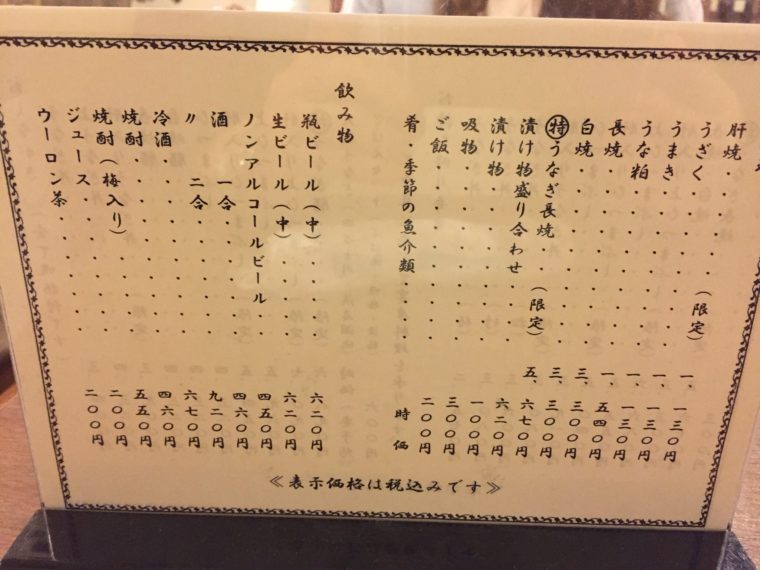 肝焼・・・・・(限定) 一、一三〇円
うざく・・・・・・・ 一、一三〇円
うまき・・・・・・・ 一、一三〇円
うな粕・・・・・・・ 一、五四〇円
長焼・・・・・・・・ 三、三〇〇円
白焼・・・・・・・・ 三、三〇〇円
特うなぎ長焼・(限定) 五、六七〇円
漬け物盛り合わせ・・ 六二〇円
漬け物・・・・・・・ 一〇〇円
吸物・・・・・・・・ 三〇〇円
ご飯・・・・・・・・ 二〇〇円
肴・季節の魚介類・・・ 時価
飲み物
瓶ビール(中)・・・・ 六二〇円
生ビール(中)・・・・ 六二〇円
ノンアルコールビール・ 四五〇円
酒 一合・・・・・・ 四六〇円
〃 二合・・・・・・ 九二〇円
冷酒・・・・・・・・ 六七〇円
焼酎・・・・・・・・ 四六〇円
焼酎(梅入り)・・・・ 五五〇円
ジュース・・・・・・ 二〇〇円
ウーロン茶・・・・・ 二〇〇円
≪表示価格は税込みです≫